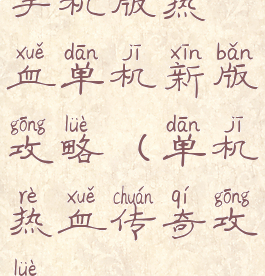 手机版热
xuě dān jī xīn bǎn
血单机新版
gōng lüè dān jī
攻略(单机
rè xuě chuán qí gōng
热血传奇攻
lüè